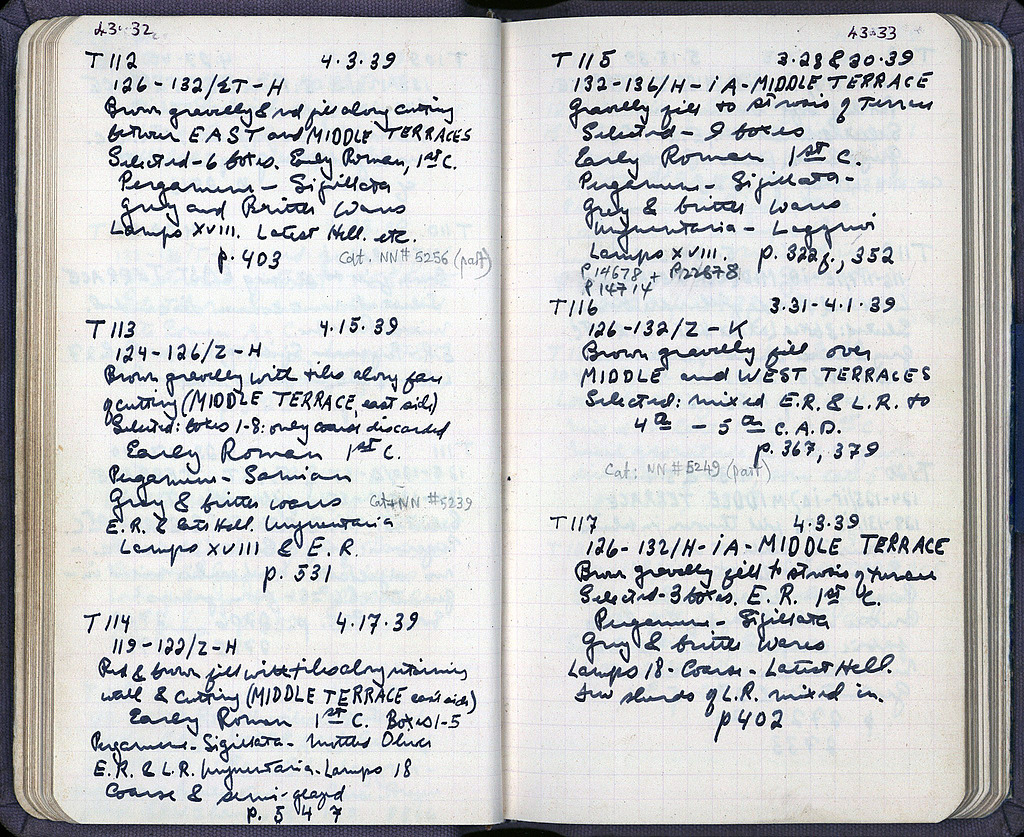 43-32
T 112 4.3.39
126-132/ΣT-H
Brown gravelly & red fill along cutting
between EAST and MIDDLE TERRACES
Selected-6 boxes. Early Roman, 1st C.
Pergamene - Sigillata
Grey and Brittle Wares
Lamps XVIII. Latest Hell. etc.
p. 403 Cat. NN# 5256 (part)
T 113 4.15.39
124-126/Z-H
Brown gravelly with tiles along face
of cutting (MIDDLE TERRACE, east side)
Selected: boxes 1-8: only coarse discarded
Early Roman 1st C.
Pergamene - Samian
Grey & brittle wares Cat: NN #5239
E.R. & late Hell. Unguentaria
Lamps XVIII & E.R.
p. 531
T 114 4.17.39
119-122/Z-H
Red & brown fill with tiles along retaining
wall & cutting (MIDDLE TERRACE east side)
Early Roman 1st C. Boxes 1-5
Pergamene - Sigillata - Mottled
E.R. & L.R. Unguentaria - Lamps 18
Coarse & semi-glazed
p. 547
43-33
T 115 3.28 & 30.39
132-136/H-iA-MIDDLE TERRACE
Gravelly fill to strosis of Terrace
Selected - 9 boxes
Early Roman 1st C.
Pergamene - Sigillata -
Grey & brittle wares
Unguentaria - Lagynoi
Lamps XVIII. p. 322f., 352
P14678 + P22878
P14714
T 116 3.31-4.1.39
126-132/Z-K
Brown gravelly fill over
MIDDLE and WEST TERRACES
Selected: mixed E.R. & L.R. to
4th - 5th C. A.D.
p. 367, 379
Cat: NN #5249 (part)
T 117 4.3.39
126-132/H-iA-MIDDLE TERRACE
Brown gravelly fill to strosis of terrace
Selected-3 boxes. E.R. 1st C.
Pergamene - Sigillata
Grey & brittle wares
Lamps 18 - Coarse - Latest Hell.
Few sherds of L.R. mixed in.
p 402